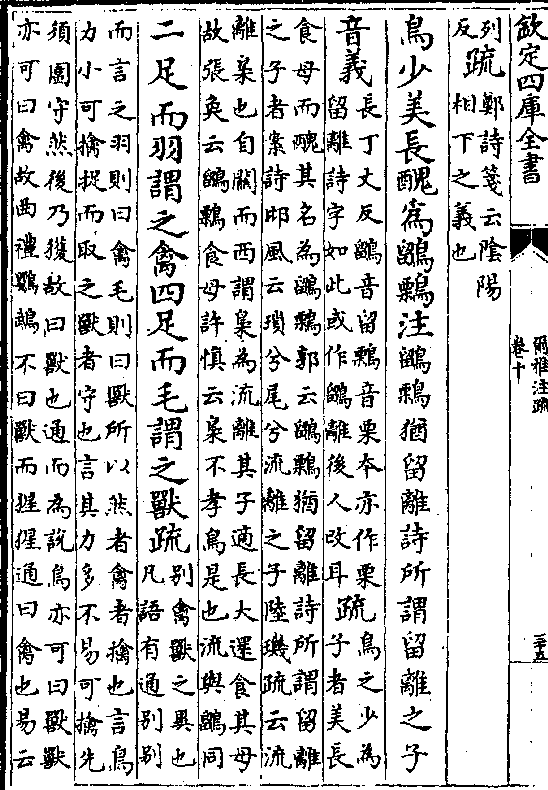 欽定四庫全書
爾雅注疏
卷十
三十五
列
反
疏
鄭詩箋云陰陽
相下之義也
鳥少美長醜為鶹鷅注鶹鷅猶留離詩所謂留離之子
音義
長丁丈反鶹音留鷅音栗本亦作栗
留離詩字如此或作鶹離後人改耳
疏
鳥之少為
子者美長
食母而醜其名為鶹鷅郭云鶹鷅猶留離詩所謂留離
之子者案詩邶風云瑣兮尾兮流離之子陸璣疏云流
離梟也自關而西謂梟為流離其子適長大還食其母
故張奐云鶹鷅食母許慎云梟不孝鳥是也流與鶹同
二足而羽謂之禽四足而毛謂之獸疏
別禽獸之異也
凡語有通別別
而言之羽則曰禽毛則曰獸所以然者禽者擒也言鳥
力小可擒捉而取之獸者守也言其力多不易可擒先
須圍守然後乃獲故曰獸也通而為說鳥亦可曰獸獸
亦可曰禽故曲禮鸚鵡不曰獸而猩猩通曰禽也易云